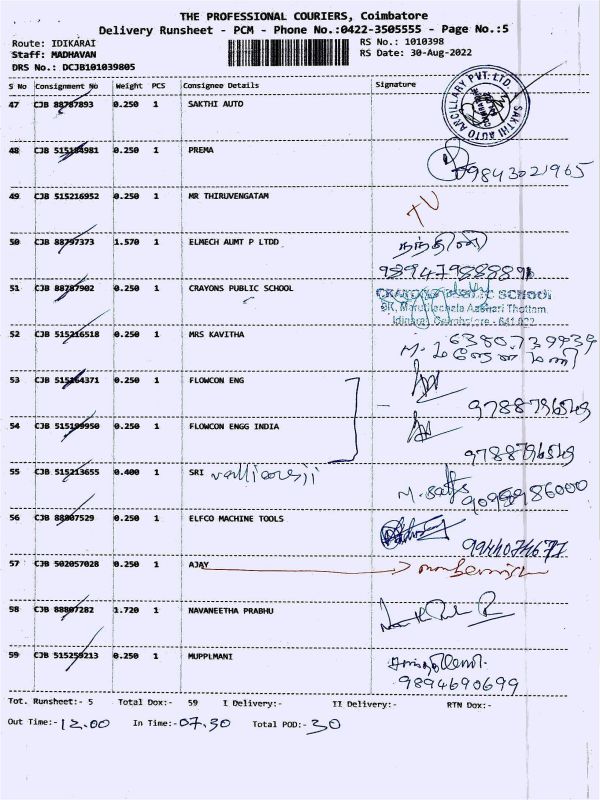 THE PROFESSIONAL COURIERS, Coimbatore
Delivery Runsheet - PCM - Phone No.:0422-3505555 - Page No.:5
Route: IDIKARAI RS No.: 1010398
Staff: MADHAVAN RS Date: 30-Aug-2022
DRS No.: DCJB101039805
S No Consignment No Weight PCS Consignee Details Signature
SAKTHI AUTO ARCILLARY PVT. LTD.
47 CJB 88787893 0.250 1 SAKTHI AUTO
48 CJB 515184981 0.250 1 PREMA
09843021965
49 CJB 515216952 0.250 1 MR THIRUVENGATAM
50 CJB 88797373 1.570 1 ELMECH AUMT P LTDD நந்தினி
51 CJB 88787902 0.250 1 CRAYONS PUBLIC SCHOOL
CRAYONS PUBLIC SCHOOL
Idikarai, Coimbatore - 641 022
52 CJB 515216518 0.250 1 MRS KAVITHA
53 CJB 515164371 0.250 1 FLOWCON ENG
9788796549
54 CJB 515199950 0.250 1 FLOWCON ENGG INDIA
9788796549
55 CJB 515213655 0.400 1 SRI
56 CJB 88807529 0.250 1 ELFCO MACHINE TOOLS
9944074677
57 CJB 502057028 0.250 1 AJAY
58 CJB 88807282 1.720 1 NAVANEETHA PRABHU
59 CJB 515259213 0.250 1 MUPPLMANI
9894690699
Tot. Runsheet:- 5 Total Dox:- 59 I Delivery:- II Delivery:- RTN Dox:-
Out Time:- 12.00 In Time:- 07.30 Total POD:- 30